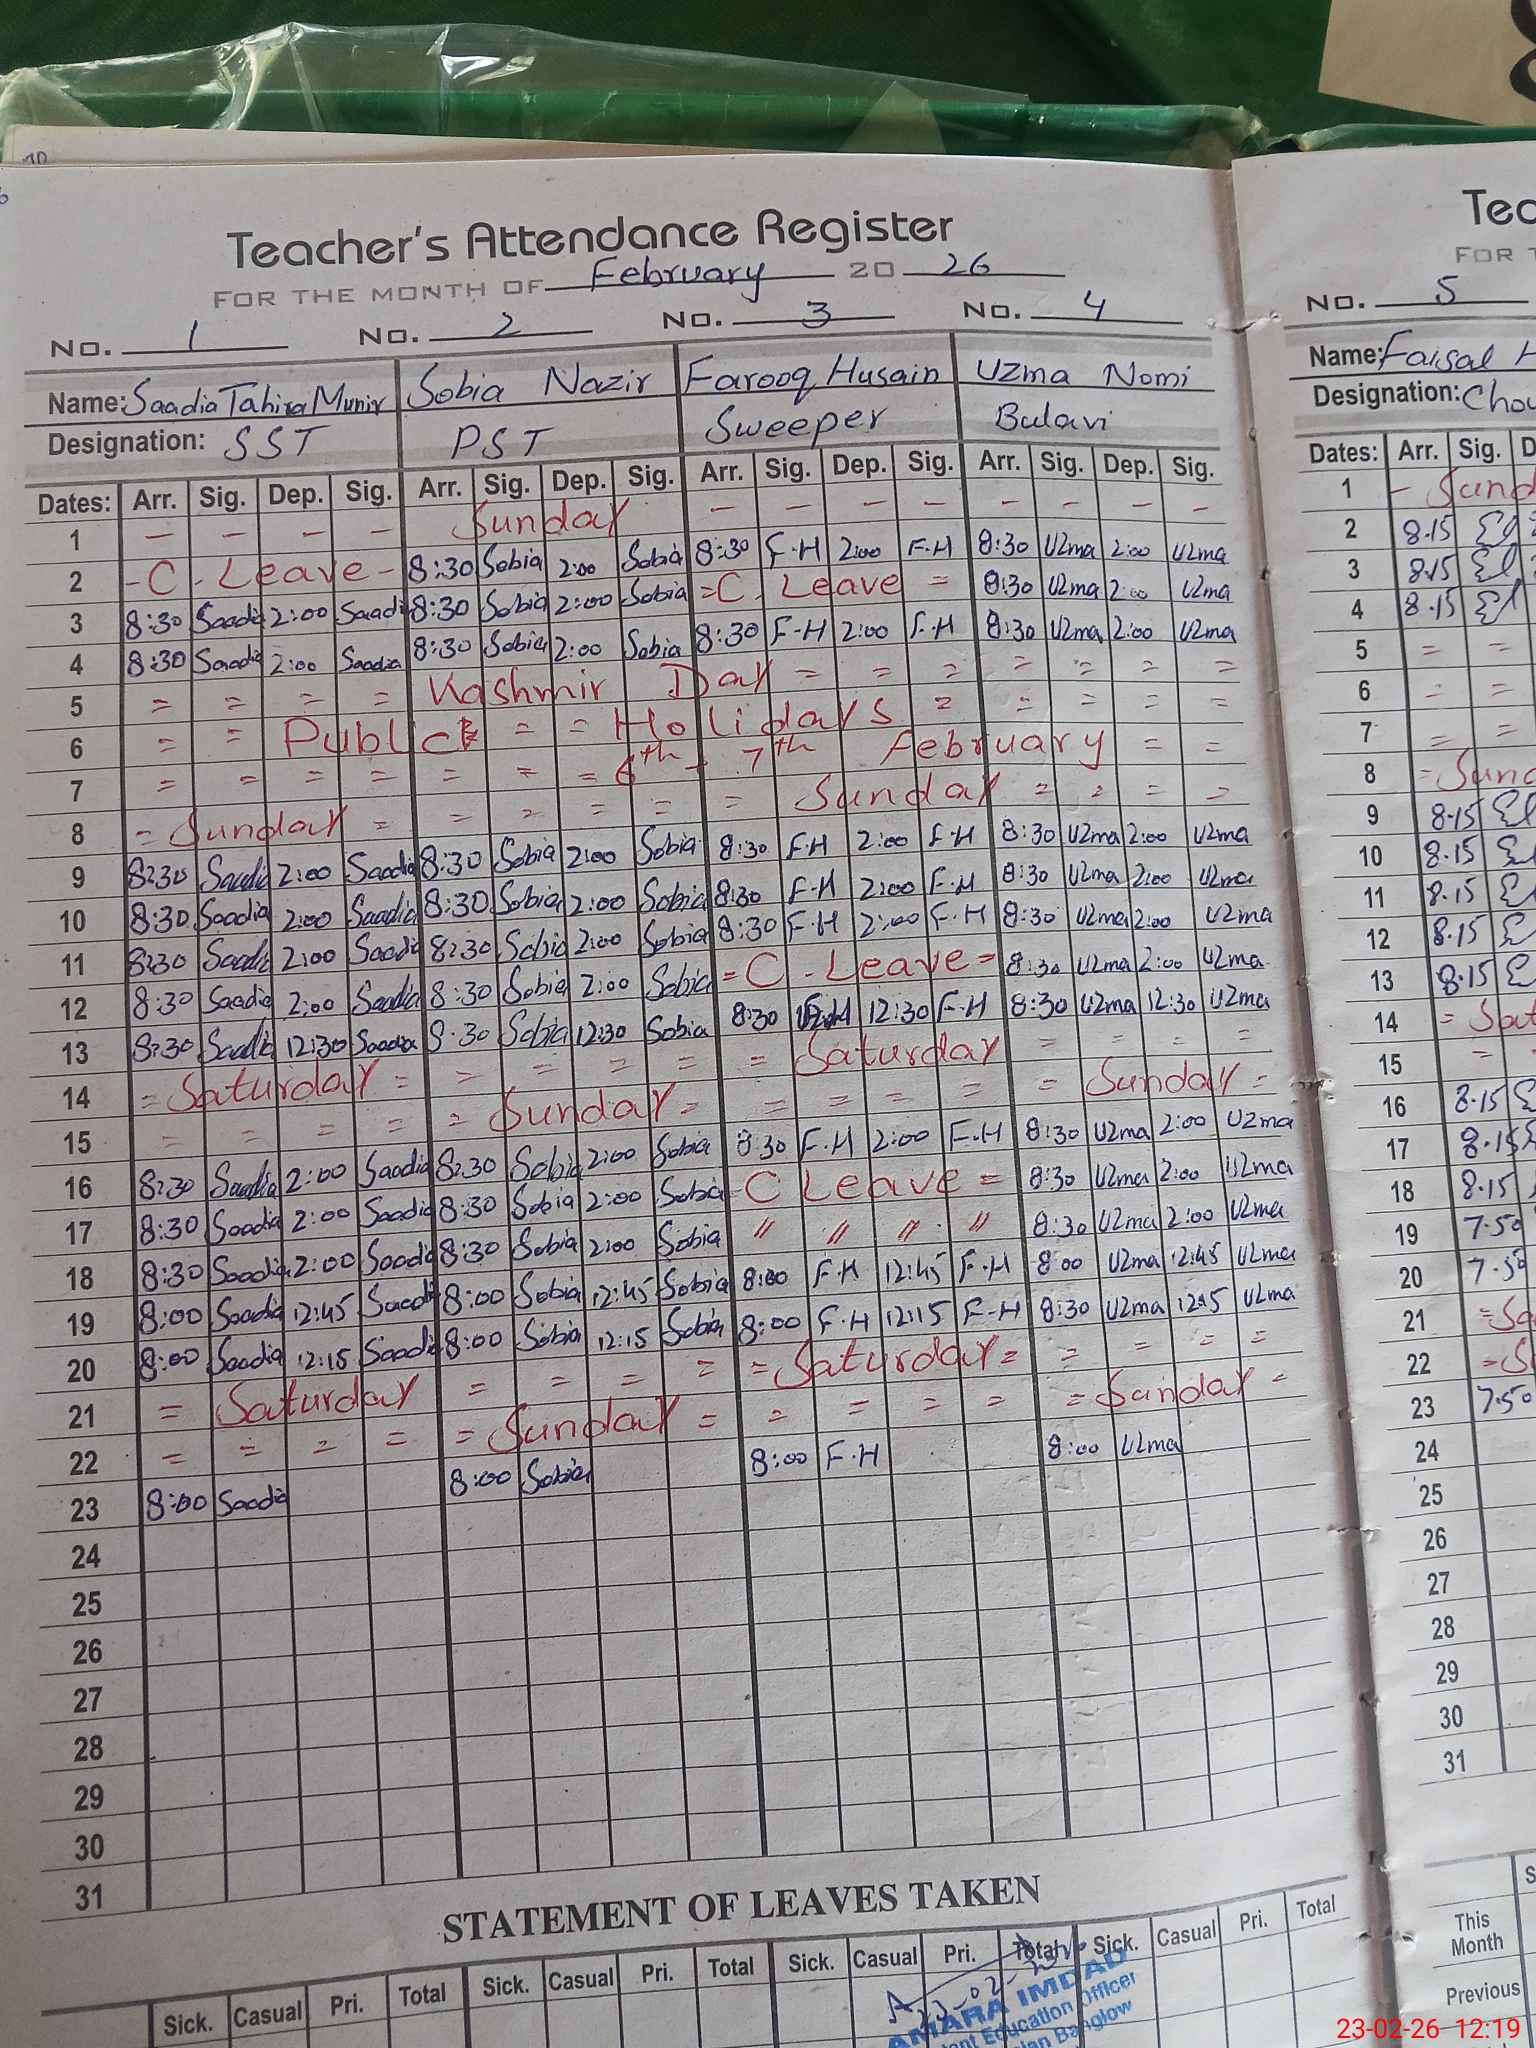 Teacher's Attendance Register
FOR THE MONTH OF February 20 26
No. 1 No. 2 No. 3 No. 4
Name: Saadia Tahira Munir Sobia Nazir Farooq Husain Uzma Nomi
Designation: SST PST Sweeper Bulavi
Dates: Arr. Sig. Dep. Sig. Arr. Sig. Dep. Sig. Arr. Sig. Dep. Sig. Arr. Sig. Dep. Sig.
1 – – – – Sunday – – – – – – – –
2 – C - Leave – 8:30 Sobia 2:00 Sobia 8:30 F.H 2:00 F.H 8:30 Uzma 2:00 Uzma
3 8:30 Saadia 2:00 Saadi 8:30 Sobia 2:00 Sobia = C. Leave = 8:30 Uzma 2:00 Uzma
4 8:30 Saadia 2:00 Saadia 8:30 Sobia 2:00 Sobia 8:30 F-H 2:00 F.H 8:30 Uzma 2:00 Uzma
5 = = = = Kashmir Day = = = = = = =
6 = = Public = = Holidays = = = = =
7 = = = = = = = 6th - 7th February = =
8 = Sunday = = = = = = Sunday = = = =
9 8:30 Saadia 2:00 Saadia 8:30 Sobia 2:00 Sobia 8:30 F.H 2:00 F.H 8:30 Uzma 2:00 Uzma
10 8:30 Saadia 2:00 Saadia 8:30 Sobia 2:00 Sobia 8:30 F.H 2:00 F.H 8:30 Uzma 2:00 Uzma
11 8:30 Saadia 2:00 Saadia 8:30 Sobia 2:00 Sobia 8:30 F.H 2:00 F.H 8:30 Uzma 2:00 Uzma
12 8:30 Saadia 2:00 Saadia 8:30 Sobia 2:00 Sobia = C - Leave = 8:30 Uzma 2:00 Uzma
13 8:30 Saadia 12:30 Saadia 8:30 Sobia 12:30 Sobia 8:30 12:30 F-H 8:30 Uzma 12:30 Uzma
14 = Saturday = = = = = = Saturday = = = =
15 = = = = = Sunday = = = = = = Sunday =
16 8:30 Saadia 2:00 Saadia 8:30 Sobia 2:00 Sobia 8:30 F.H 2:00 F.H 8:30 Uzma 2:00 Uzma
17 8:30 Saadia 2:00 Saadia 8:30 Sobia 2:00 Sobia C Leave = 8:30 Uzma 2:00 Uzma
18 8:30 Saadia 2:00 Saadia 8:30 Sobia 2:00 Sobia " " " " 8:30 Uzma 2:00 Uzma
19 8:00 Saadia 12:45 Saadi 8:00 Sobia 12:45 Sobia 8:00 F.H 12:45 F-H 8:00 Uzma 12:45 Uzma
20 8:00 Saadia 12:15 Saadi 8:00 Sobia 12:15 Sobia 8:00 F.H 12:15 F-H 8:30 Uzma 12:15 Uzma
21 = Saturday = = = = = Saturday = = = = =
22 = = = = = Sunday = = = = = = Sunday =
23 8:00 Saadia 8:00 Sobia 8:00 F.H 8:00 Uzma
24
25
26
27
28
29
30
31
STATEMENT OF LEAVES TAKEN
Sick. Casual Pri. Total Sick. Casual Pri. Total Sick. Casual Pri. Total Sick. Casual Pri. Total
AMARA IMDAD
Education Officer
Banglow
FOR
No. 5
Name: Faisal H
Designation:
Dates: Arr. Sig. D
1
2 8.15
3 8.15
4 8.15
5 = =
6 = =
7 = =
8
9 8.15
10 8.15
11 8.15
12 8.15
13 8.15
14
15
16 8.15
17 8.15
18 8.15
19 7.50
20 7.50
21
22
23 7.50
24
25
26
27
28
29
30
31
This
Month
Previous
23-02-26 12:19